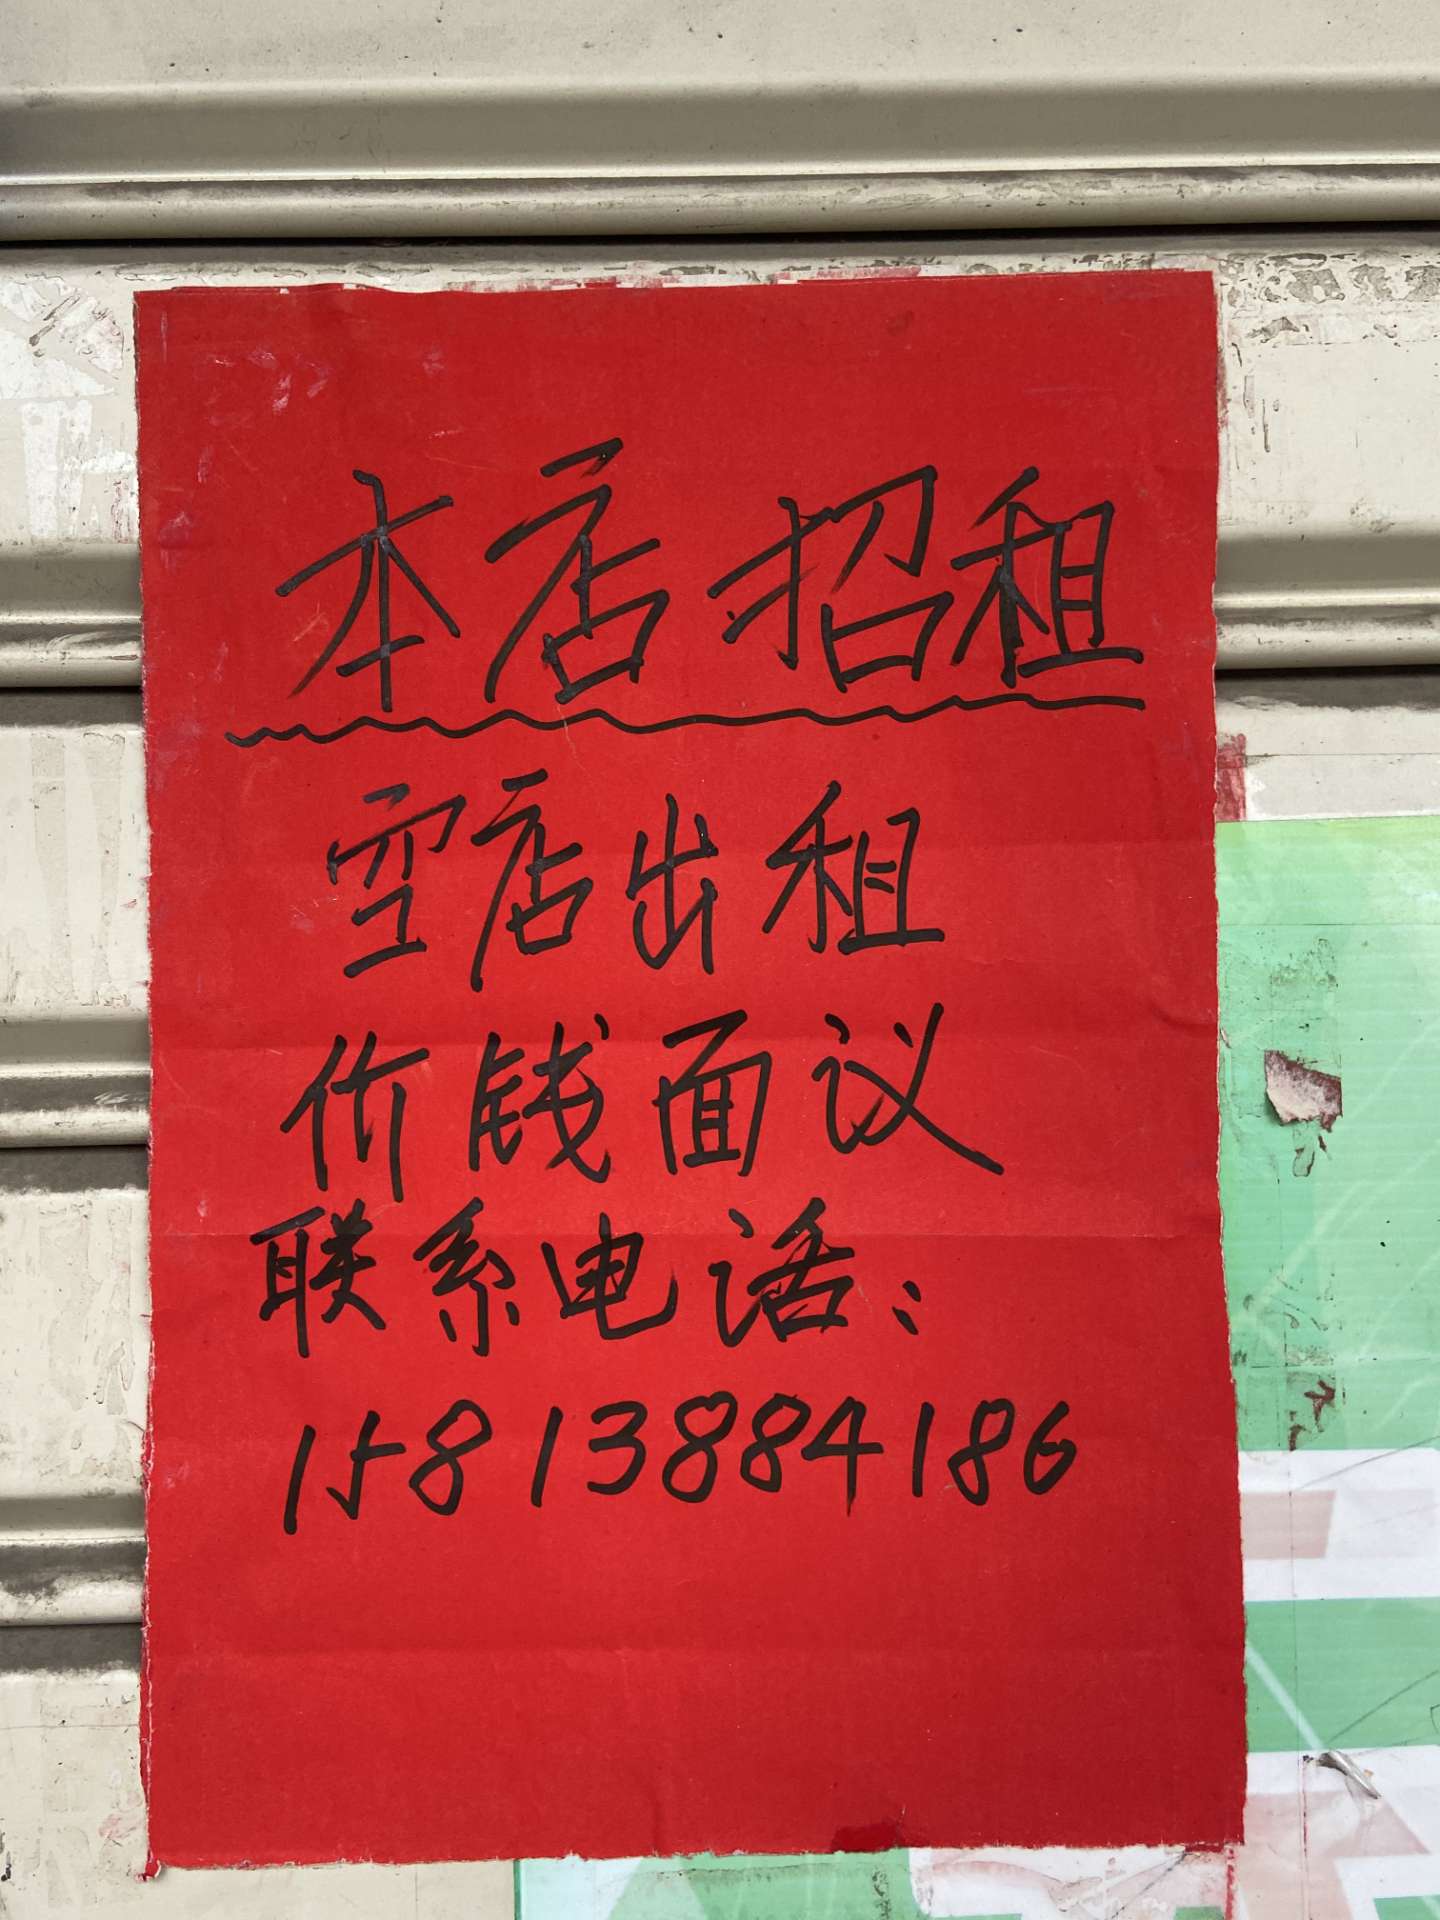 本店招租
空店出租
价钱面议
联系电话：
15813884186